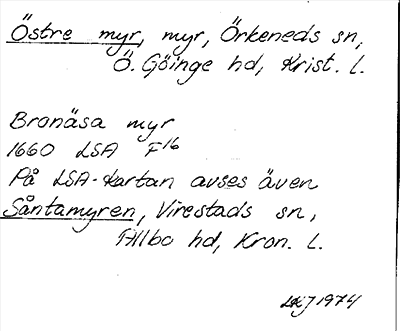 Östre myr, myr, Örkeneds sn,
Ö. Göinge hd, Krist. l.
Bronäsa myr
1660 LSA F16
På LSA-kartan avses även
Såntamyren, Virestads sn,
Allbo hd, Kron. l.
1974